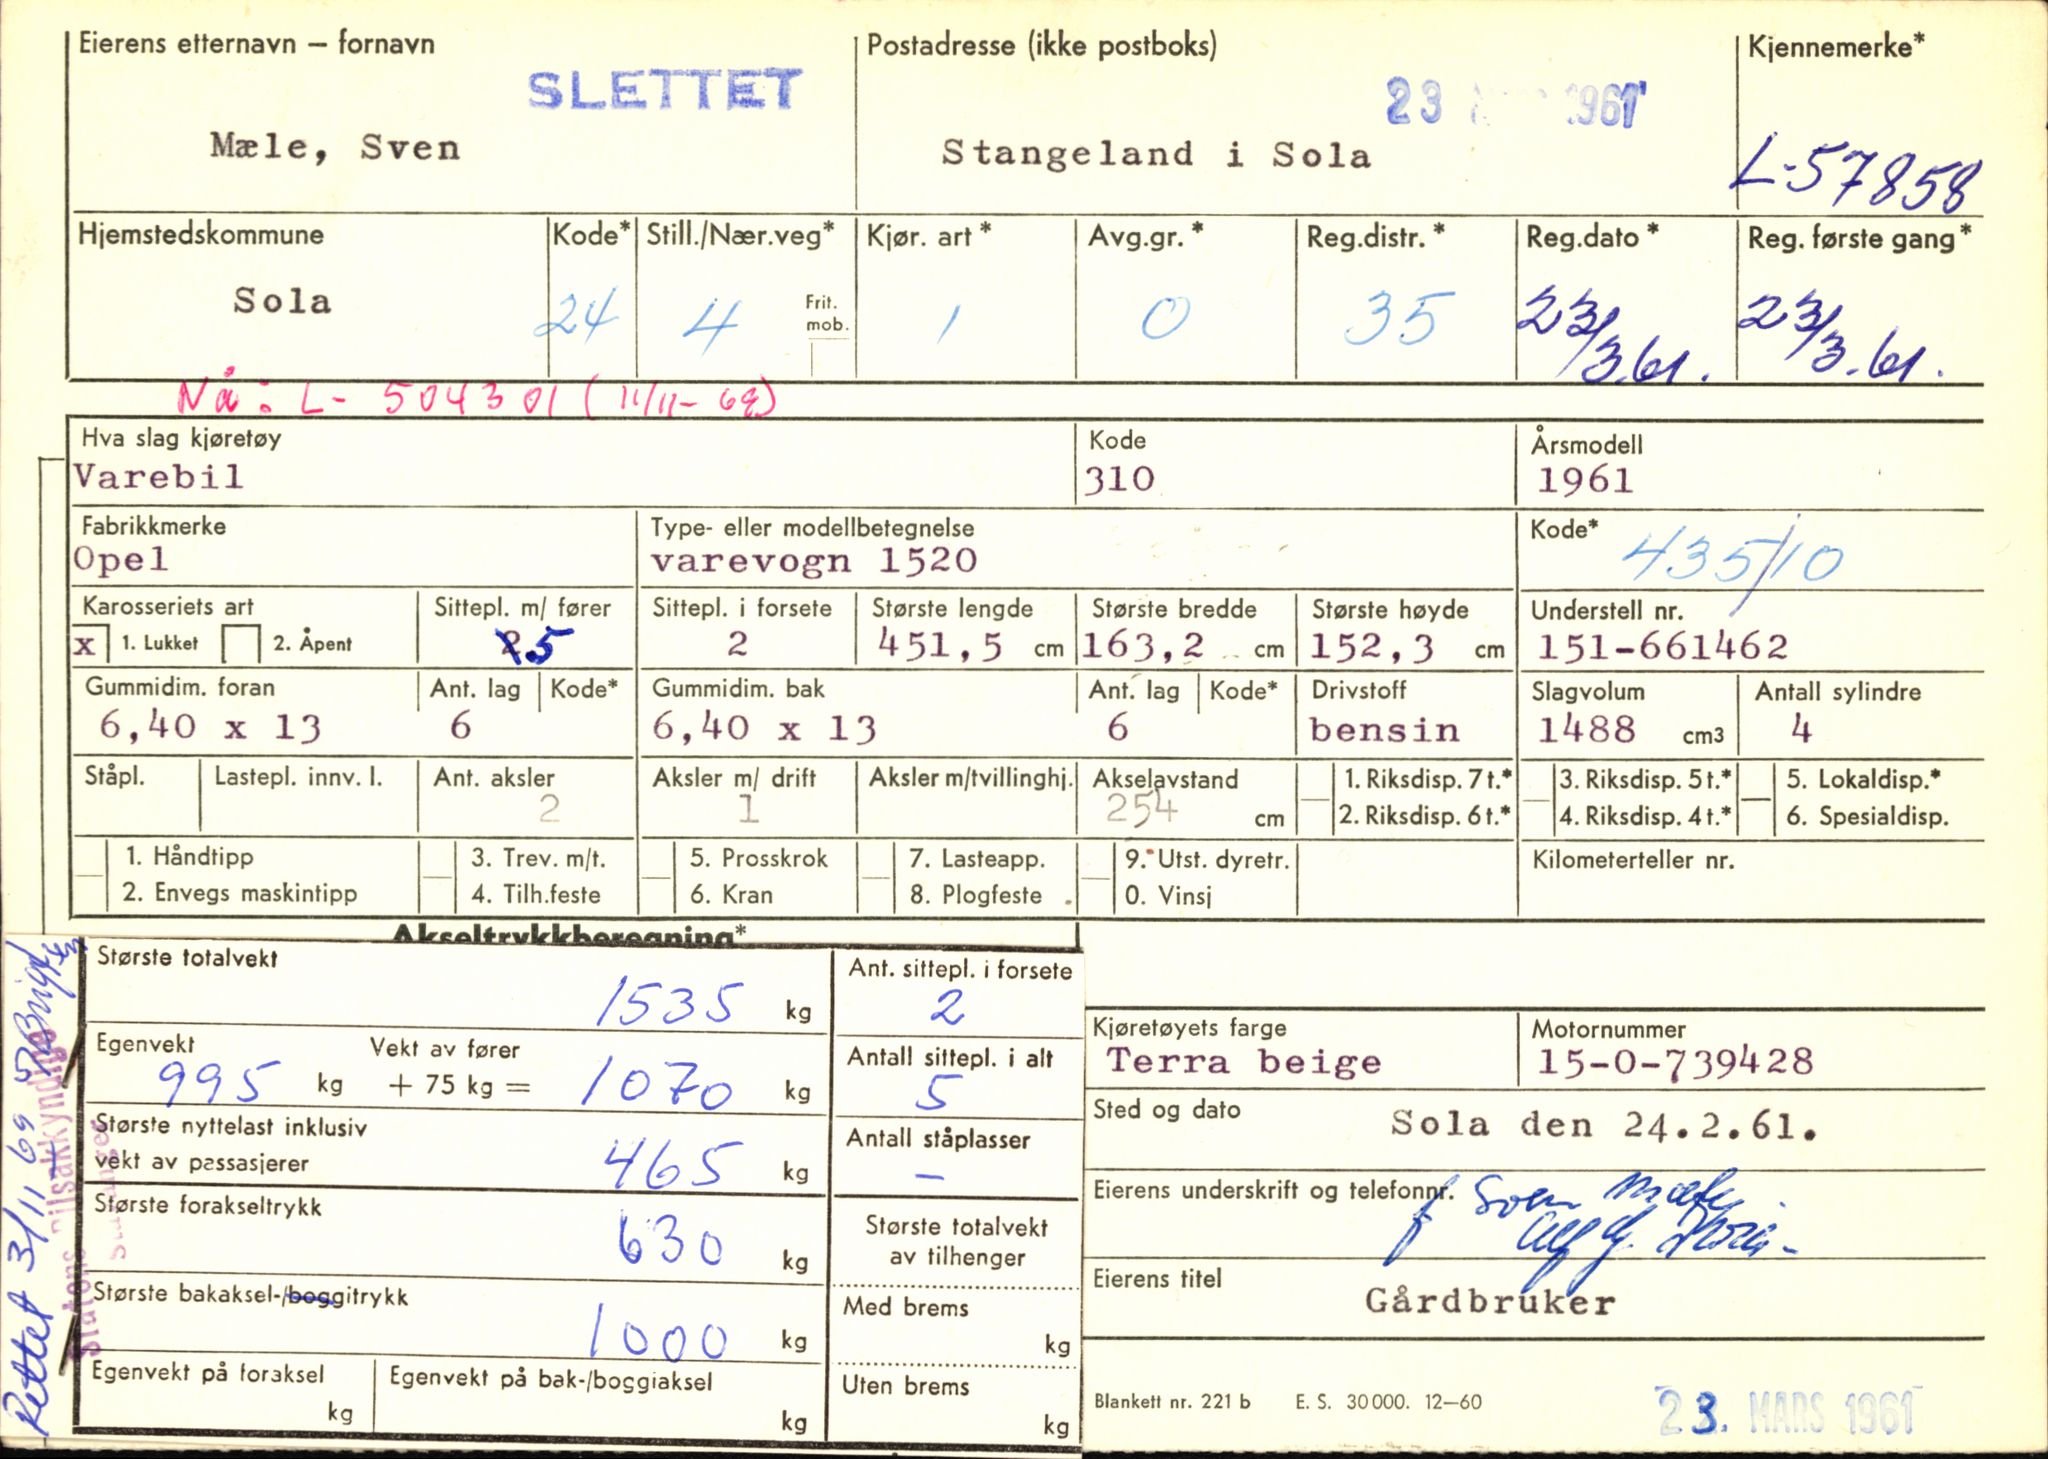 Eierens etternavn – fornavn
SLETTET
Mæle, Sven
Postadresse (ikke postboks)
23 1961
Stangeland i Sola
Kjennemerke*
L-57858
Hjemstedskommune
Sola
Kode*
24
Still./Nær.veg*
4
Frit. mob.
Kjør. art*
1
Avg.gr.*
0
Reg.distr.*
35
Reg.dato*
23/3.61.
Reg. første gang*
23/3.61.
Nå: L- 504301 (11/11-69)
Hva slag kjøretøy
Varebil
Kode
310
Årsmodell
1961
Fabrikkmerke
Opel
Type- eller modellbetegnelse
varevogn 1520
Kode*
435/10
Karosseriets art
x 1. Lukket 2. Åpent
Sittepl. m/ fører
2 5
Sittepl. i forsete
2
Største lengde
451,5 cm
Største bredde
163,2 cm
Største høyde
152,3 cm
Understell nr.
151-661462
Gummidim. foran
6,40 x 13
Ant. lag
6
Kode*
Gummidim. bak
6,40 x 13
Ant. lag
6
Kode*
Drivstoff
bensin
Slagvolum
1488 cm3
Antall sylindre
4
Ståpl.
Lastepl. innv. l.
Ant. aksler
2
Aksler m/ drift
1
Aksler m/tvillinghj.
Akselavstand
254 cm
1. Riksdisp. 7 t.*
2. Riksdisp. 6 t.*
3. Riksdisp. 5 t.*
4. Riksdisp. 4 t.*
5. Lokaldisp.*
6. Spesialdisp.
1. Håndtipp
2. Envegs maskintipp
3. Trev. m/t.
4. Tilh.feste
5. Prosskrok
6. Kran
7. Lasteapp.
8. Plogfeste
9. Utst. dyretr.
0. Vinsj
Kilometerteller nr.
Akseltrykkberegning*
Største totalvekt
1535 kg
Egenvekt
995 kg
Vekt av fører
+ 75 kg =
1070 kg
Største nyttelast inklusiv
vekt av passasjerer
465 kg
Største forakseltrykk
630 kg
Største bakaksel-/boggitrykk
1000 kg
Egenvekt på foraksel
kg
Egenvekt på bak-/boggiaksel
kg
Ant. sittepl. i forsete
2
Antall sittepl. i alt
5
Antall ståplasser
–
Største totalvekt
av tilhenger
Med brems
kg
Uten brems
kg
Rettet 3/11 69
Statens bilsakkyndige
Kjøretøyets farge
Terra beige
Motornummer
15-0-739428
Sted og dato
Sola den 24.2.61.
Eierens underskrift og telefonnr.
f Sven Mæle
Eierens titel
Gårdbruker
Blankett nr. 221 b E. S. 30 000. 12–60
23. MARS 1961